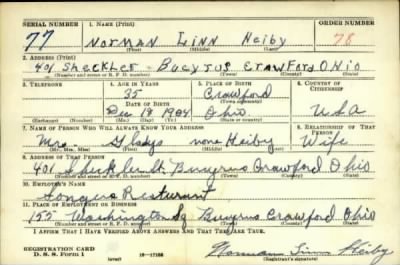 SERIAL NUMBER 1. NAME (Print) ORDER NUMBER
77 NORMAN LINN Heiby 78
(First) (Middle) (Last)
2. ADDRESS (Print)
401 Sheckler Bucyrus Crawford Ohio
(Number and street or R. F. D. number) (Town) (County) (State)
3. TELEPHONE 4. AGE IN YEARS 5. PLACE OF BIRTH 6. COUNTRY OF CITIZENSHIP
35 Crawford
DATE OF BIRTH (Town or county)
Dec 18 1904 Ohio USA
(Exchange) (Number) (Mo.) (Day) (Yr.) (State or country)
7. NAME OF PERSON WHO WILL ALWAYS KNOW YOUR ADDRESS 8. RELATIONSHIP OF THAT PERSON
Mrs Gladys none Heiby Wife
(Mr., Mrs., Miss) (First) (Middle) (Last)
9. ADDRESS OF THAT PERSON
401 Sheckler St. Bucyrus Crawford Ohio
(Number and street or R. F. D. number) (Town) (County) (State)
10. EMPLOYER'S NAME
Resturant
11. PLACE OF EMPLOYMENT OR BUSINESS
155 Washington Sq Bucyrus Crawford Ohio
(Number and street or R. F. D. number) (Town) (County) (State)
I AFFIRM THAT I HAVE VERIFIED ABOVE ANSWERS AND THAT THEY ARE TRUE.
REGISTRATION CARD
D. S. S. FORM 1 (over) 16—17105 Norman Linn Heiby
(Registrant's signature)